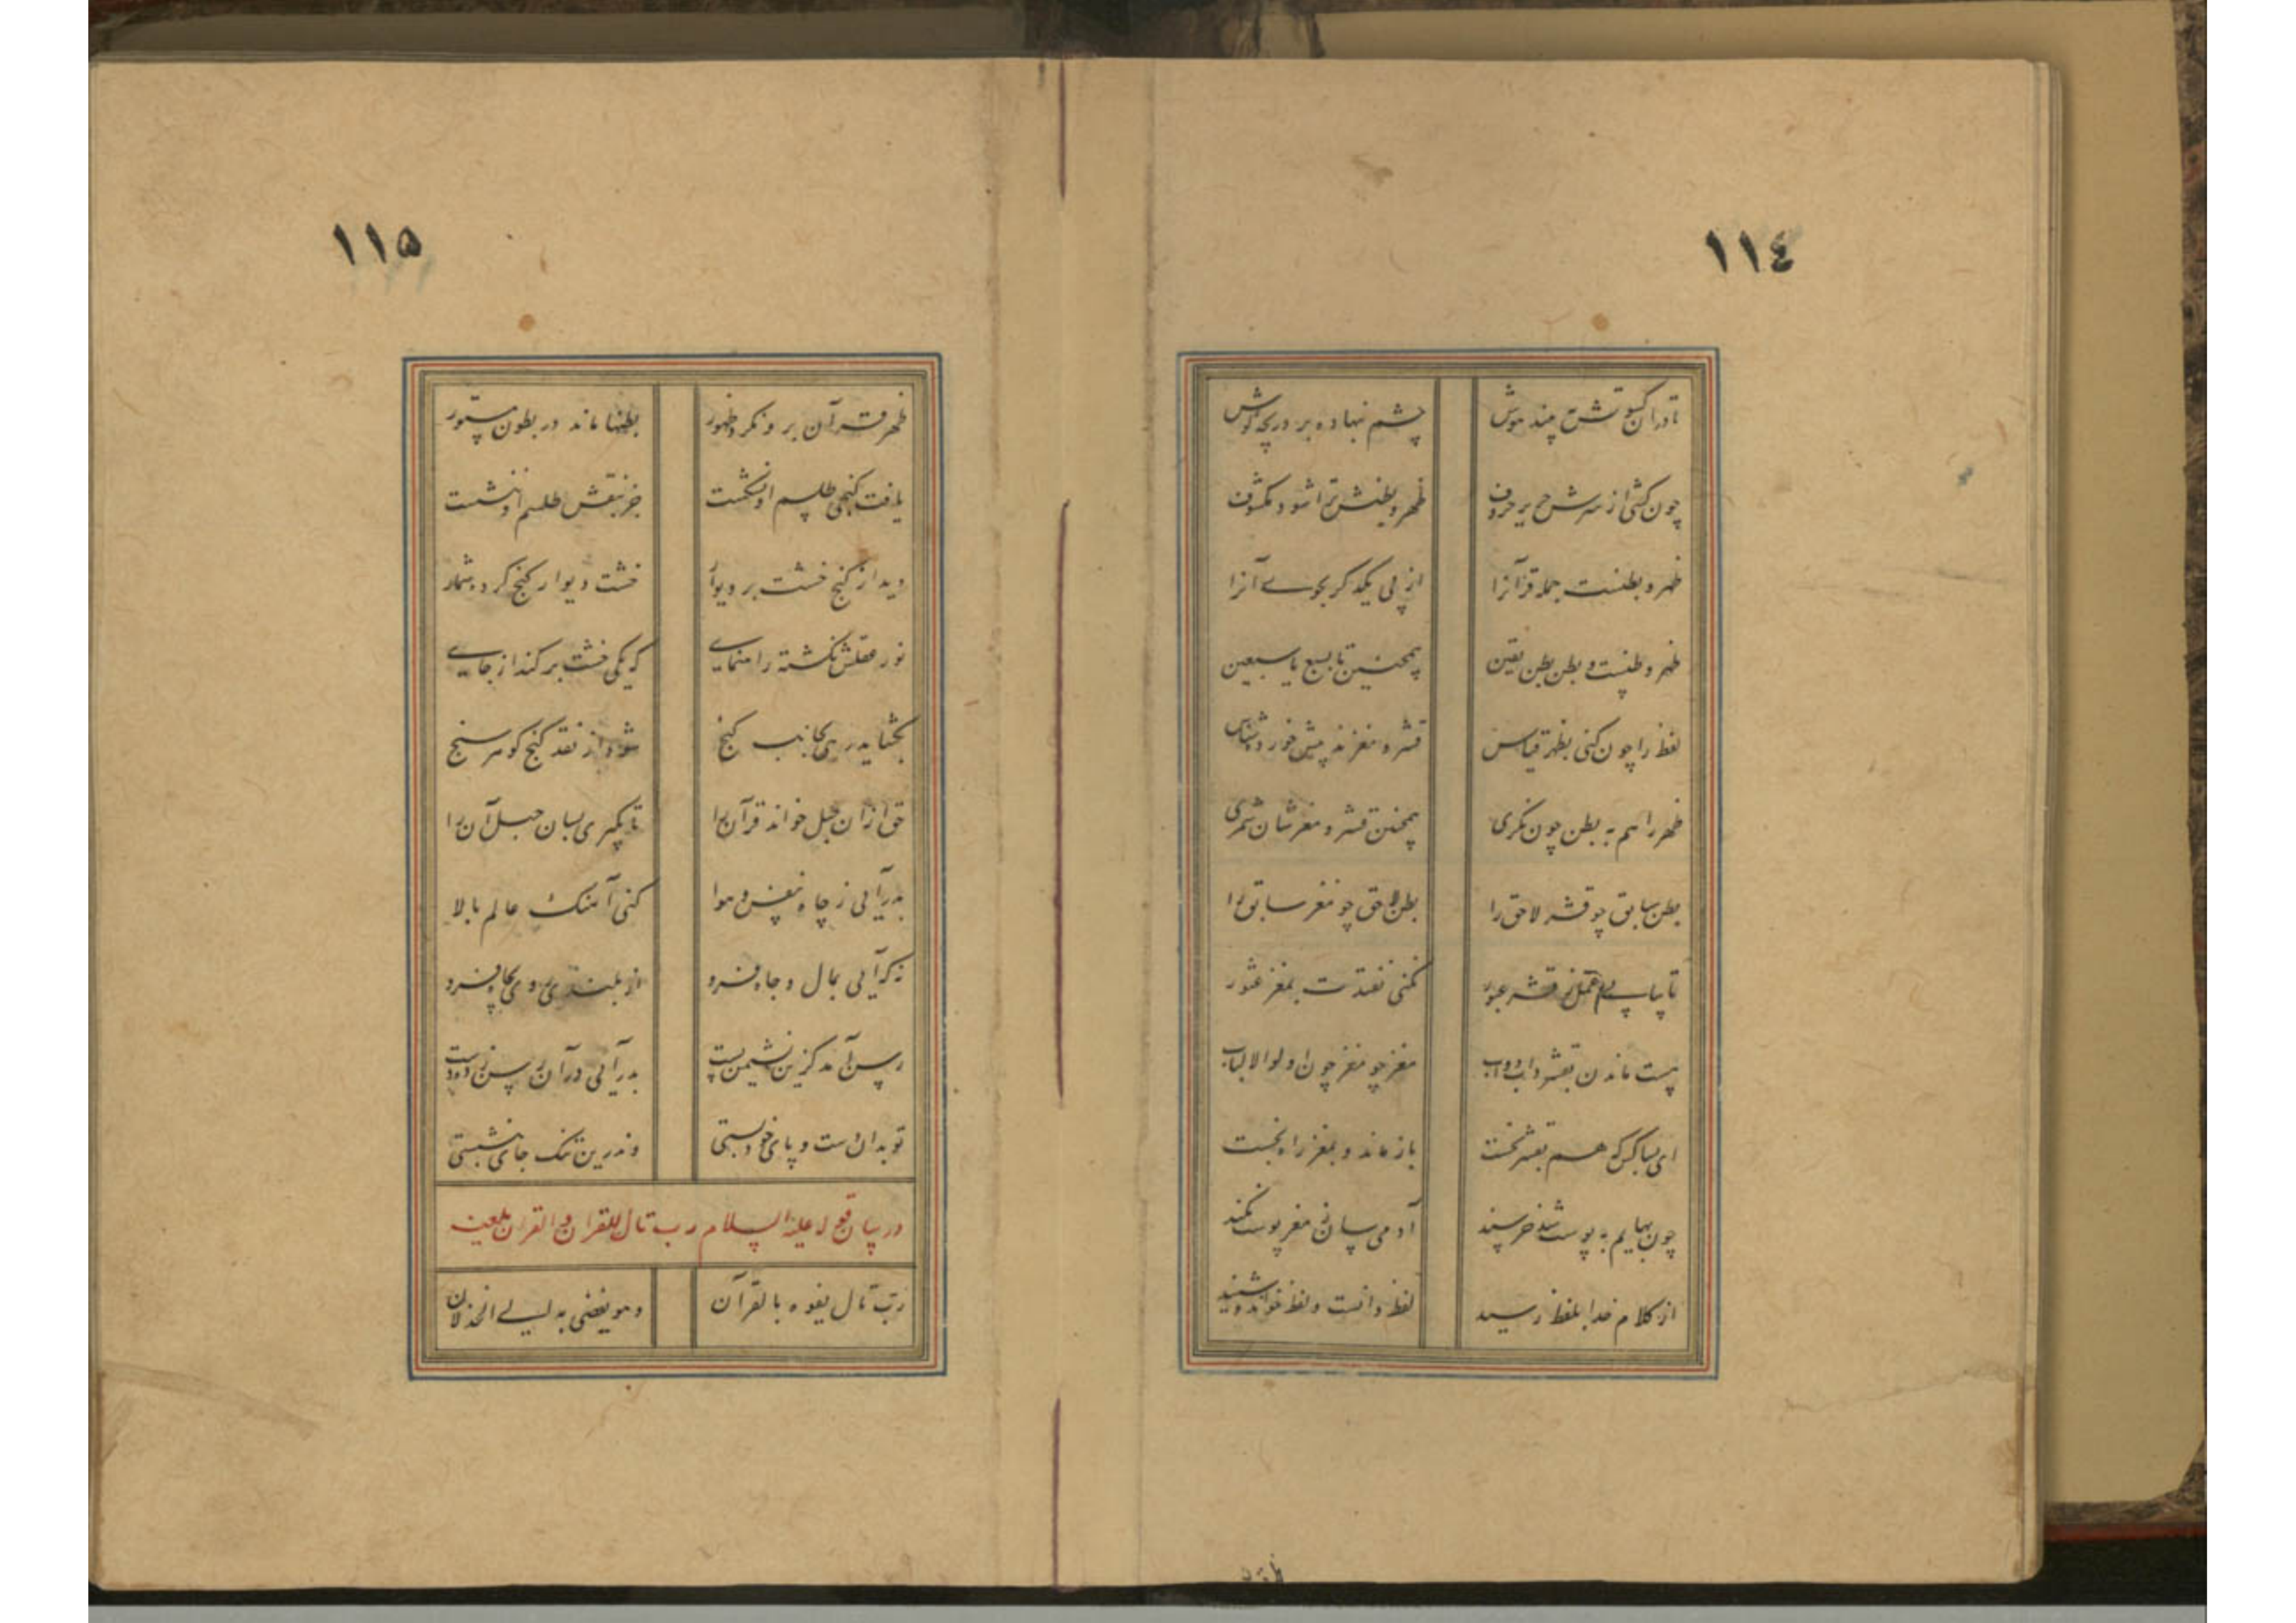 ١١٤
تا در آن کسوتش چند موش
چشم نهاده بر دریچه گوش
چون کشی از سرش حریر حروف
ظهر و بطنش ترا شود مکشوف
ظهر و بطنست جمله قرآنرا
از پی یکدگر بجوی آنرا
ظهر و بطنست و بطن بطن یقین
همچنین تا بسبع یا سبعین
لفظ را چون کنی بظهر قیاس
قشر و مغزند پیش خورده‌شناس
ظهر را هم به بطن چون نگری
همچنین قشر و مغزشان شمری
بطن سابق چو قشر لاحق را
بطن لاحق چو مغز سابق را
تا نیابی ز قشر عبور
نکنی نفتدت بمغز عثور
نیست ماندن بقشر داب دواب
مغز جو مغز چون اولوا الالباب
ای بسا کس که هم بقشر نخست
باز ماند و بمغز راه نجست
چون بهایم به پوست شد خرسند
آدمی سان ز مغز پوست نکند
از کلام خدا بلفظ رسید
لفظ دانست و لفظ خواند و شنید
١١۵
ظهر قرآن بر و نکرد ظهور
بطنها ماند در بطون مستور
یافت گنجی طلسم او نشکست
جز بنقش طلسم او ننشست
دید از گنج خشت بر دیوار
خشت دیوار گنج کرد شمار
نور عقلش نگشته راهنمای
که یکی خشت بر کند از جای
بگشاید رهی بجانب گنج
شود از نقد گنج گوهر سنج
حق ازان حبل خواند قرآن را
تا بگیری بسان حبل آن را
بدر آیی ز چاه نفس و هوا
کنی آهنگ عالم بالا
نه که آیی بمال و جاه فرو
از بلندی روی بچاه فرو
رسن آمد کزین نشیمن پست
بدر آیی در آن رسن زده دست
تو بدان دست و پای خود بستی
وندرین تنگ جای بنشستی
در بیان قوله علیه السلام رب تال للقران و القران یلعنه
رب تال یفوه بالقرآن
و هو یفضی به الی الخذلان